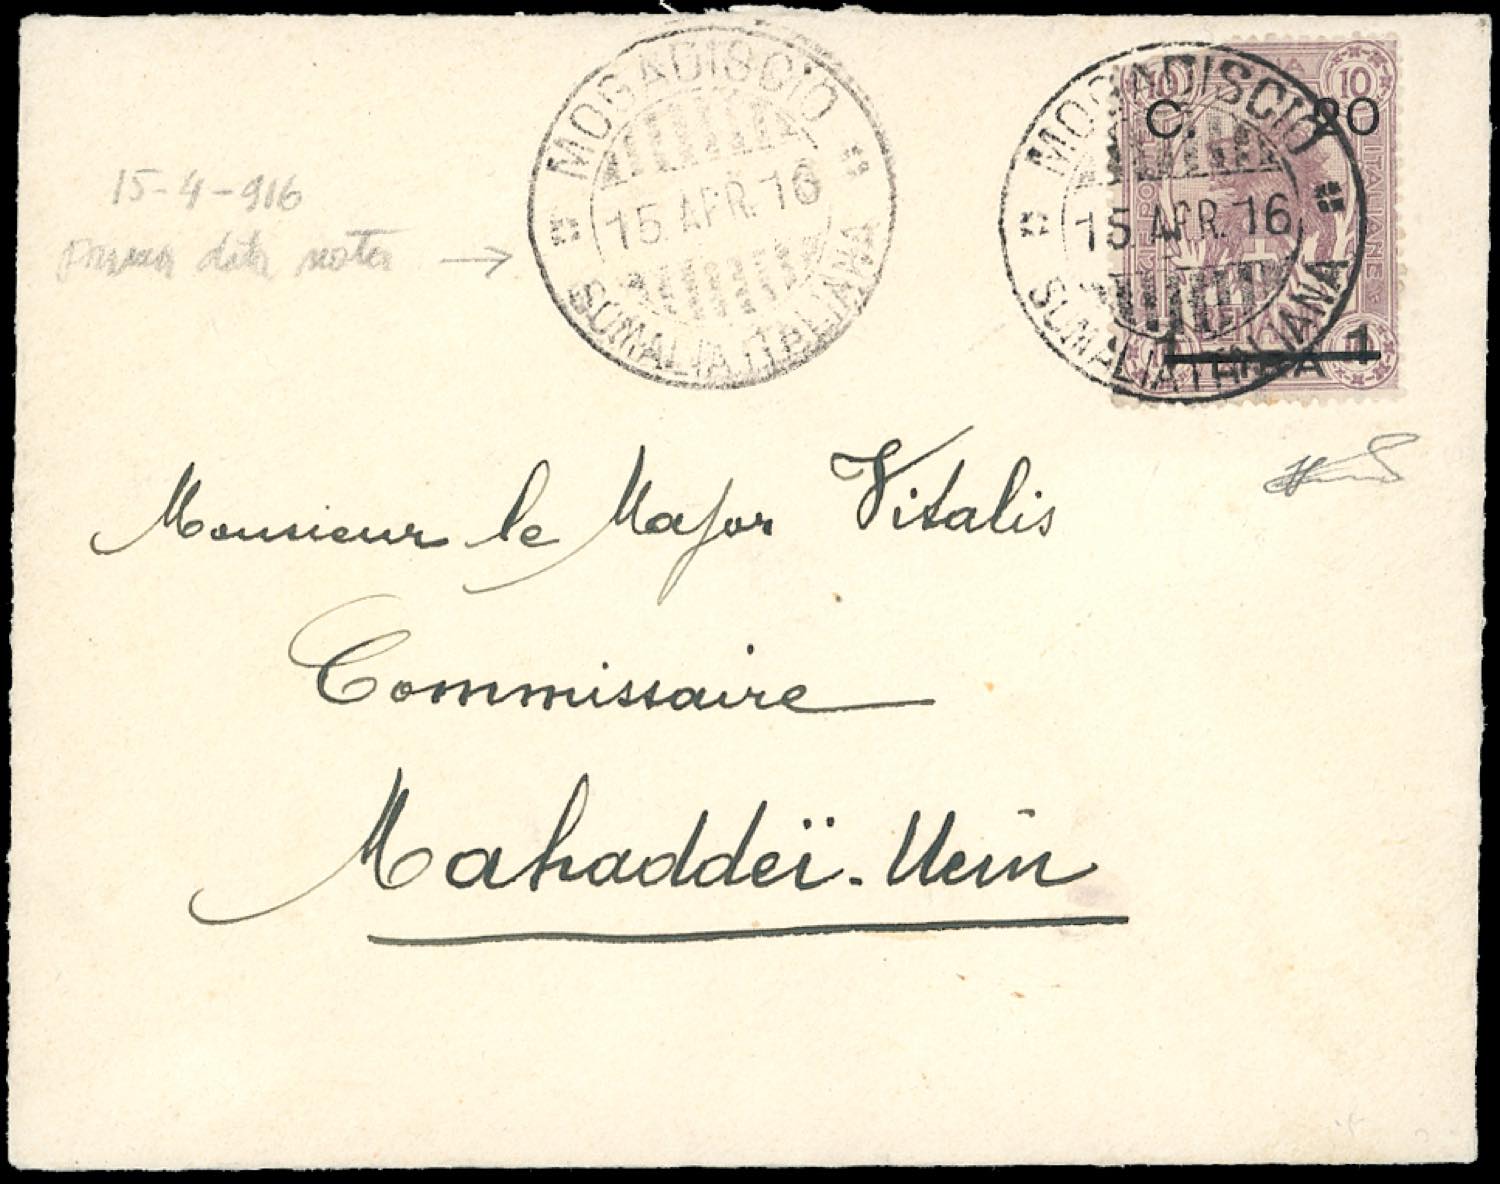 MOGADISCIO
15. APR. 16
SOMALIA ITALIANA
MOGADISCIO
15 APR. 16
SOMALIA ITALIANA
10
10
C. 20
POSTE
ITALIANE
1 1
15-4-916
prima data nota →
Monsieur le Major Vitalis
Commissaire
Mahaddeï-Uein